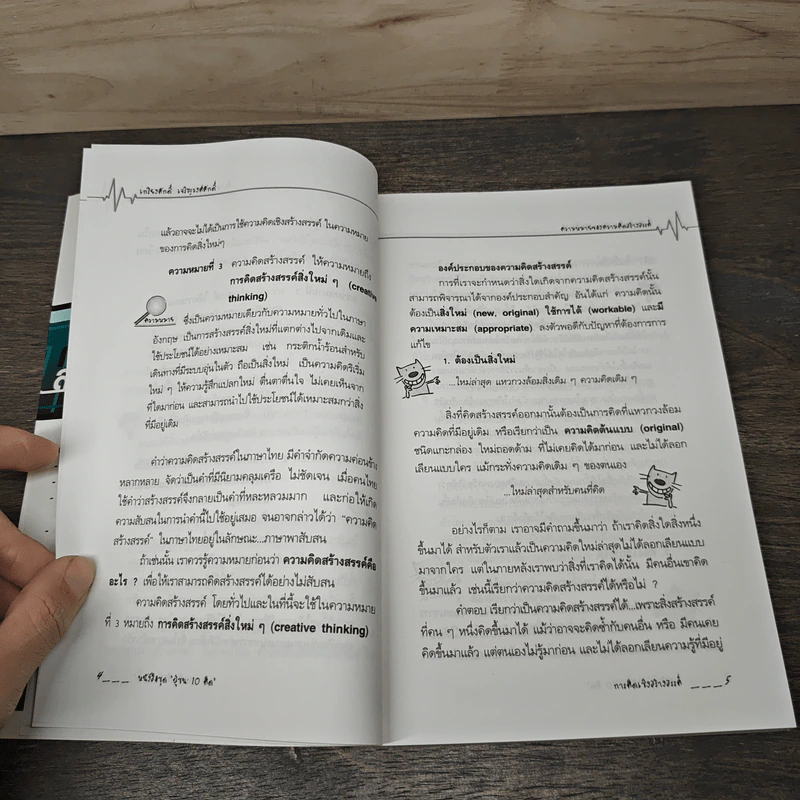 เกรียงศักดิ์ เจริญวงศ์ศักดิ์
แล้วอาจจะไม่ได้เป็นการใช้ความคิดเชิงสร้างสรรค์ ในความหมาย
ของการคิดสิ่งใหม่ๆ
ความหมายที่ 3 ความคิดสร้างสรรค์ ให้ความหมายถึง
การคิดสร้างสรรค์สิ่งใหม่ ๆ (creative
thinking)
ความหมาย ซึ่งเป็นความหมายเดียวกับความหมายทั่วไปในภาษา
อังกฤษ เป็นการสร้างสรรค์สิ่งใหม่ที่แตกต่างไปจากเดิมและ
ใช้ประโยชน์ได้อย่างเหมาะสม เช่น กระติกน้ำร้อนสำหรับ
เดินทางที่มีระบบอุ่นในตัว ถือเป็นสิ่งใหม่ เป็นความคิดริเริ่ม
ใหม่ ๆ ให้ความรู้สึกแปลกใหม่ ตื่นตาตื่นใจ ไม่เคยเห็นจาก
ที่ใดมาก่อน และสามารถนำไปใช้ประโยชน์ได้เหมาะสมกว่าสิ่ง
ที่มีอยู่เดิม
คำว่าความคิดสร้างสรรค์ในภาษาไทย มีคำจำกัดความค่อนข้าง
หลากหลาย จัดว่าเป็นคำที่มีนิยามคลุมเครือ ไม่ชัดเจน เมื่อคนไทย
ใช้คำว่าสร้างสรรค์จึงกลายเป็นคำที่หละหลวมมาก และก่อให้เกิด
ความสับสนในการนำคำนี้ไปใช้อยู่เสมอ จนอาจกล่าวได้ว่า "ความคิด
สร้างสรรค์" ในภาษาไทยอยู่ในลักษณะ...ภาษาพาสับสน
ถ้าเช่นนั้น เราควรรู้ความหมายก่อนว่า ความคิดสร้างสรรค์คือ
อะไร ? เพื่อให้เราสามารถคิดสร้างสรรค์ได้อย่างไม่สับสน
ความคิดสร้างสรรค์ โดยทั่วไปและในที่นี้จะใช้ในความหมาย
ที่ 3 หมายถึง การคิดสร้างสรรค์สิ่งใหม่ ๆ (creative thinking)
4___ หนังสือชุด "ผู้ชนะ 10 คิด"
ความหมายของความคิดสร้างสรรค์
องค์ประกอบของความคิดสร้างสรรค์
การที่เราจะกำหนดว่าสิ่งใดเกิดจากความคิดสร้างสรรค์นั้น
สามารถพิจารณาได้จากองค์ประกอบสำคัญ อันได้แก่ ความคิดนั้น
ต้องเป็นสิ่งใหม่ (new, original) ใช้การได้ (workable) และมี
ความเหมาะสม (appropriate) ลงตัวพอดีกับปัญหาที่ต้องการการ
แก้ไข
1. ต้องเป็นสิ่งใหม่
...ใหม่ล่าสุด แหวกวงล้อมสิ่งเดิม ๆ ความคิดเดิม ๆ
สิ่งที่คิดสร้างสรรค์ออกมานั้นต้องเป็นการคิดที่แหวกวงล้อม
ความคิดที่มีอยู่เดิม หรือเรียกว่าเป็น ความคิดต้นแบบ (original)
ชนิดแกะกล่อง ใหม่ถอดด้าม ที่ไม่เคยคิดได้มาก่อน และไม่ได้ลอก
เลียนแบบใคร แม้กระทั่งความคิดเดิม ๆ ของตนเอง
...ใหม่ล่าสุดสำหรับคนที่คิด
อย่างไรก็ตาม เราอาจมีคำถามขึ้นมาว่า ถ้าเราคิดสิ่งใดสิ่งหนึ่ง
ขึ้นมาได้ สำหรับตัวเราแล้วเป็นความคิดใหม่ล่าสุดไม่ได้ลอกเลียนแบบ
มาจากใคร แต่ในภายหลังเราพบว่าสิ่งที่เราคิดได้นั้น มีคนอื่นเขาคิด
ขึ้นมาแล้ว เช่นนี้เรียกว่าความคิดสร้างสรรค์ได้หรือไม่ ?
คำตอบ เรียกว่าเป็นความคิดสร้างสรรค์ได้...เพราะสิ่งสร้างสรรค์
ที่คน ๆ หนึ่งคิดขึ้นมาได้ แม้ว่าอาจจะคิดซ้ำกับคนอื่น หรือ มีคนเคย
คิดขึ้นมาแล้ว แต่ตนเองไม่รู้มาก่อน และไม่ได้ลอกเลียนความรู้ที่มีอยู่
การคิดเชิงสร้างสรรค์ ___5